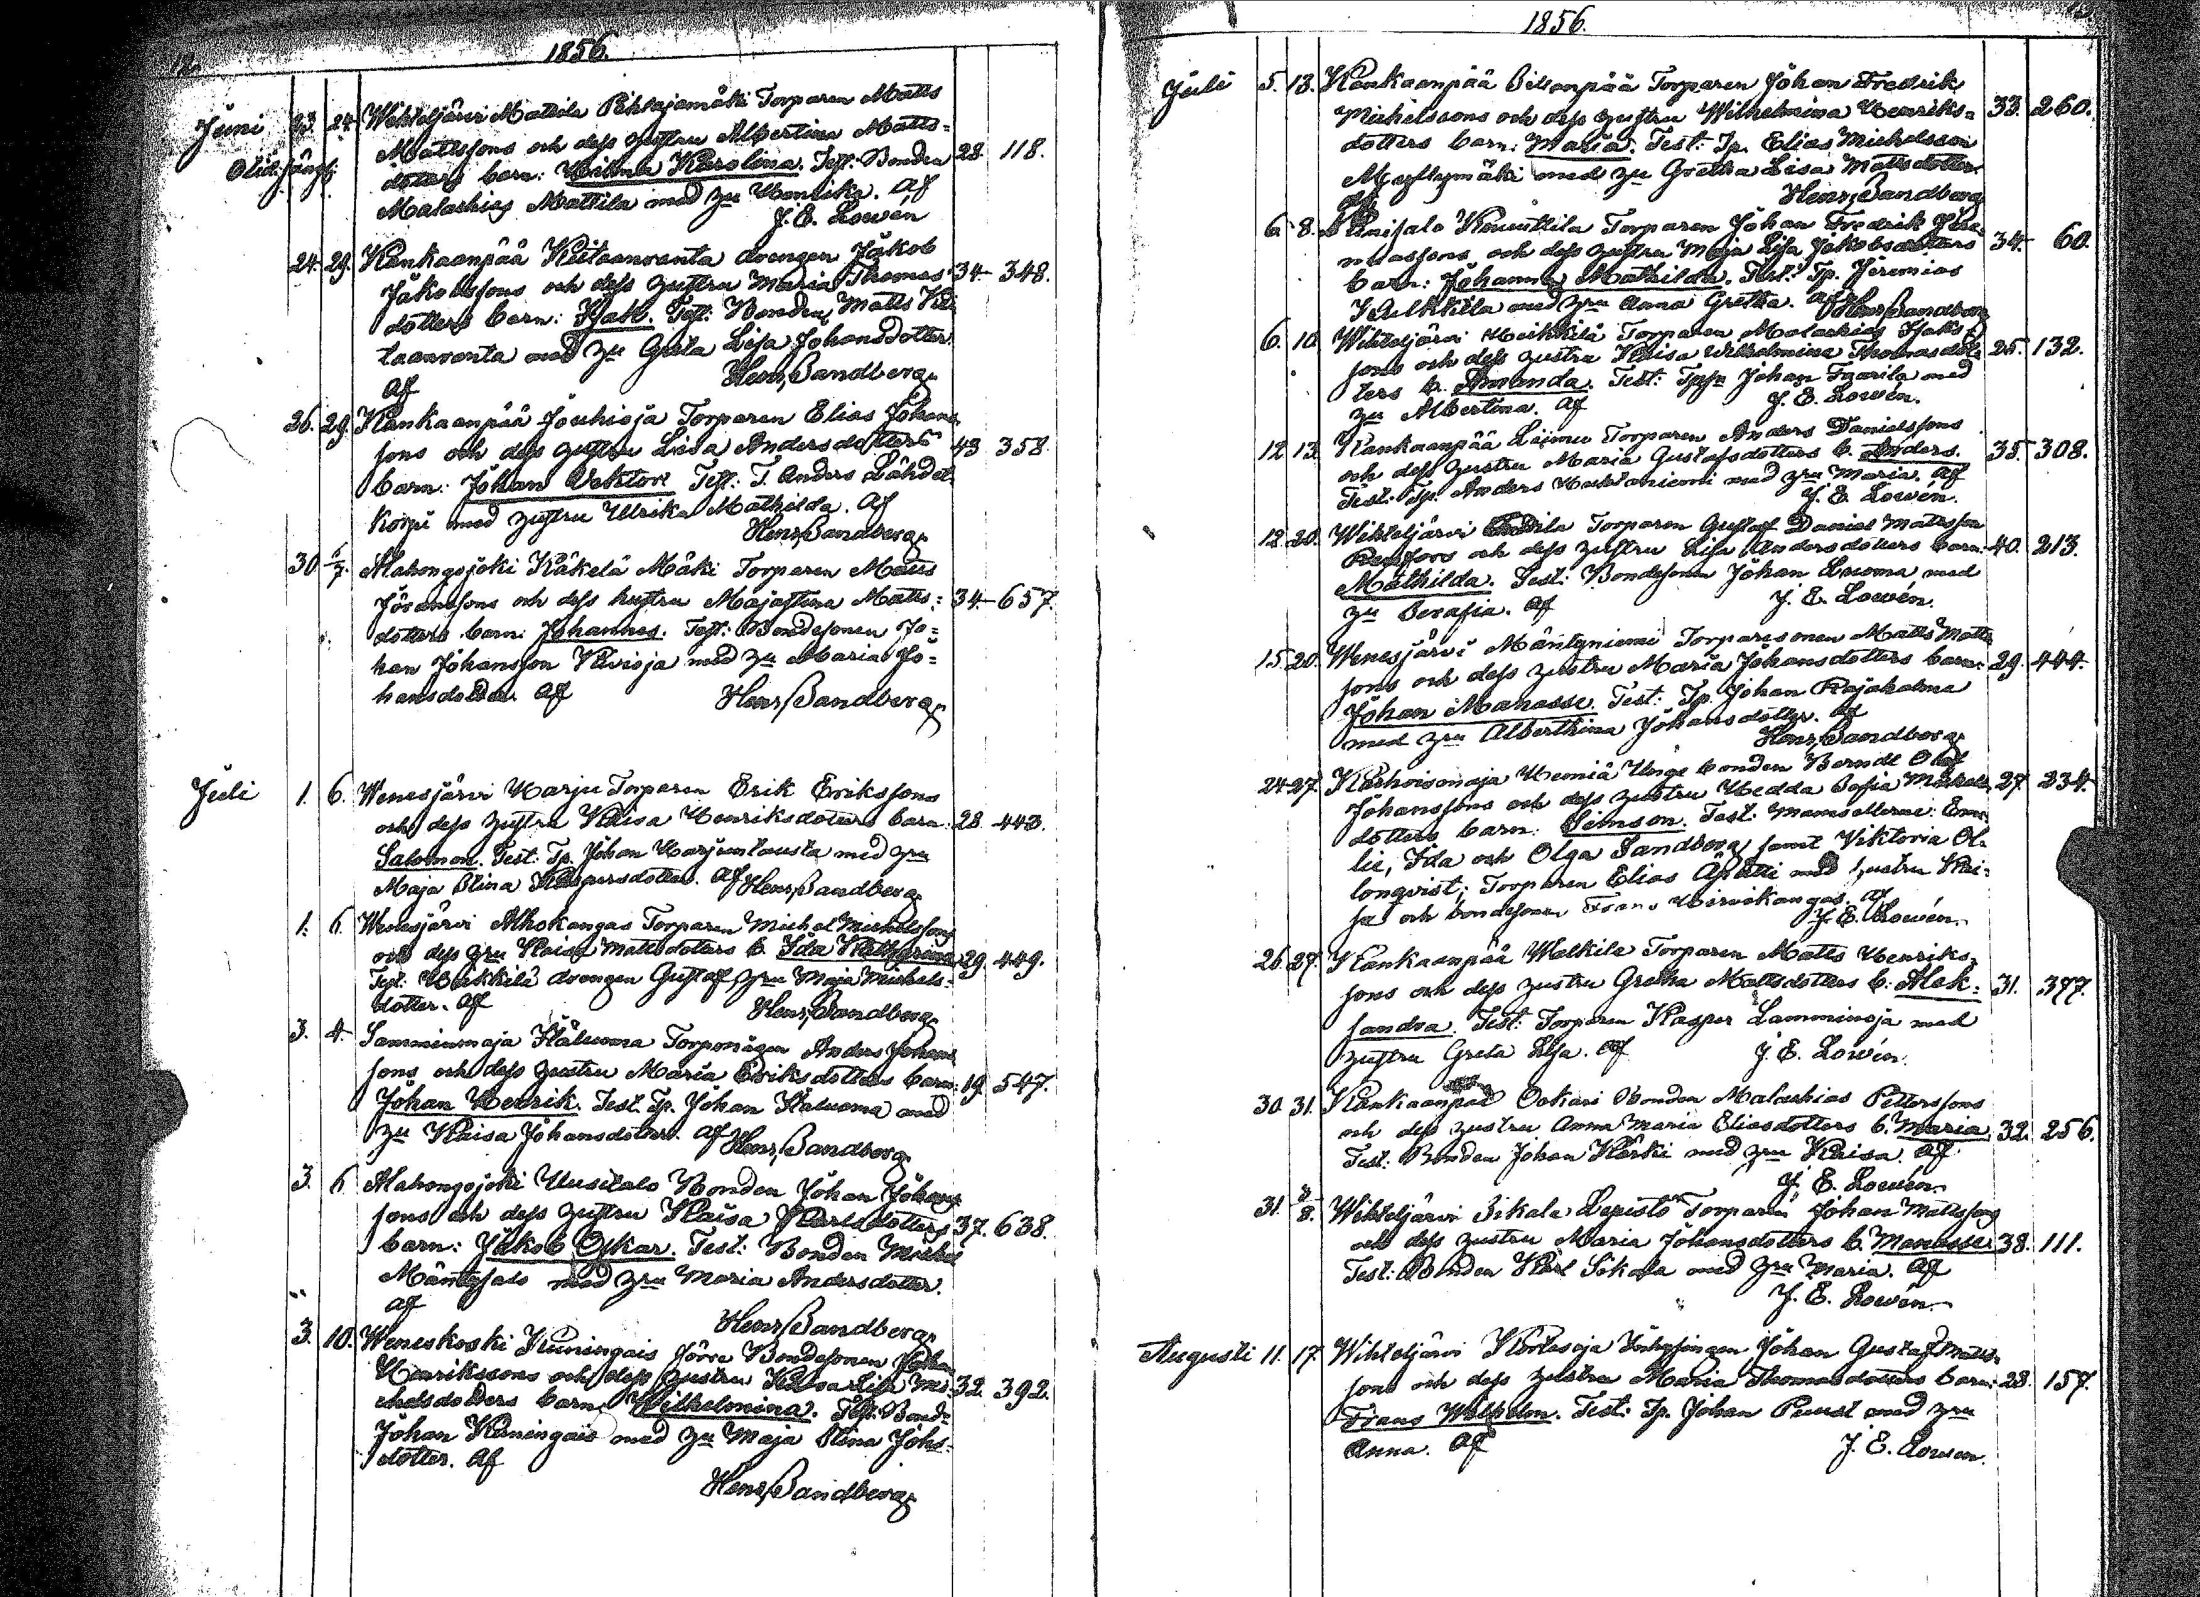 12.
1856.
Juni 23. 24. Wihteljärvi Mattila Pihlajamäki Torparen Matts
Mattssons och dess hustru Albertina Matts=
dotters barn: Wilma Karolina. Test: Bonden 28. 118.
Malachias Mattila med hu Henrika. Af
J. E. Lowén
24. 29. Kankaanpää Kiitaanranta drengen Jakob
Jakobssons och dess hustru Maria Thomas 34 348.
dotters barn: Isak. Test: Bonden Matts Kii
taanranta med hu Greta Lisa Johansdotter.
Af Henr. Sandberg
26. 29. Kankaanpää Jouhioja Torparen Elias Johans
sons och dess hustru Lisa Andersdotters 43 358
barn: Johan Vektor. Test: T. Anders Lähdet
korpi med hustru Ulrika Mathilda. Af
Henr. Sandberg
30 6/7. Alahongojoki Käkelä Mäki Torparen Matts
Göranssons och dess hustru Majastina Matts= 34 657.
dotters barn: Johannes. Test: Bondesonen Jo=
han Johansson Kivioja med hu Maria Jo=
hansdotter. Af Henr. Sandberg
Juli 1. 6. Wenesjärvi Harju Torparen Erik Erikssons
och dess hustru Kaisa Henriksdotters barn: 28 443.
Salomon. Test: Tp. Johan Harjuntausta med hru
Maja Stina Kaspersdotter. Af Henr. Sandberg
1. 6 Wenesjärvi Alhokangas Torparen Michel Michelssons
och dess hru Kaisa Mattsdotters b. Ida Katharina 29. 449.
Test: Heikkilä drengen Gustaf, hru Maja Michels=
dotter. Af Henr. Sandberg
3. 4. Samminmaja Kaluoma Torpmågen Anders Johans
sons och dess hustru Maria Eriksdotters barn: 19 547.
Johan Henrik. Test. Tp. Johan Kaluoma med
hu Kaisa Johansdotter. Af Henr. Sandberg
3. 6 Alahongojoki Uusitalo Bonden Johan Johans
sons och dess hustru Kaisa Karlsdotters 37. 638.
barn: Jakob Oskar. Test: Bonden Michel
Mäntysalo med hru Maria Andersdotter.
Af
Henr. Sandberg
3. 10. Weneskoski Kuningais Jörre Bondesonen Johan
Henrikssons och dess hustru Lisa Mi 32. 392.
chelsdotters barn Wilhelmina. Test: Bond:
Johan Kuningais med hu Maja Stina Johs=
dotter. Af
Henr. Sandberg
1856.
Juli 5. 13. Kankaanpää Torparen Johan Fredrik
Michelssons och dess hustru Wilhelmina Henriks= 33. 260.
dotters barn: Maria. Test: Tp. Elias Michelsson
Myllymäki med hu Gretha Lisa Mattsdotter
Af Henr. Sandberg
6. 8. Knuuttila Torparen Johan Fredrik Jere
miassons och dess hustru Maja Lisa Jakobsdotters 34. 60.
barn: Johanna Mathilda. Test: Tp. Jeremias
med hru Anna Gretha. Af Henr. Sandberg
6. 10 Wihteljärvi Heikkilä Torparen Malachias Isaks
sons och dess hustru Kaisa Wilhelmina Thomasdot 25. 132.
ters b. Amanda. Test: Johan Faarila med
hu Albertina. Af J. E. Lowén.
12 13. Kankaanpää Luomu Torparen Anders Danielssons
och dess hustru Maria Gustafsdotters b. Anders. 35. 308.
Test: Tp. Anders Huhtaniemi med hru Maria. Af
J. E. Lowén.
12 20. Wihteljärvi Torparen Gustaf Daniel Mattsson
och dess hustru Lisa Andersdotters barn: 40. 213.
Mathilda. Test: Bondesonen Johan Luoma med
hu Serafia. Af J. E. Lowén.
15 20. Wenesjärvi Mäntyniemi Torparesonen Matts Matts
sons och dess hustru Maria Johansdotters barn: 29. 444.
Johan Manasse. Test: Tp. Johan Rajakalma
med hru Alberthina Johansdotter. Af
Henr. Sandberg
24 27. Karhoismaja Heiniä Unge bonden Berndt Olof
Johanssons och dess hustru Hedda Sofia Michels 27. 234.
dotters barn: Simson. Test: Mamsellerne: Emi
lie, Ida och Olga Sandberg samt Viktoria Ol=
lonqvist; Torparen Elias Äpätti med hustru Kai=
sa och bondesonen Frans Hirvikangas. Af
J. E. Lowén.
26 27. Kankaanpää Walkila Torparen Matts Henriks=
sons och dess hustru Gretha Mattsdotters b: Alek= 31. 377.
sandra. Test: Torparen Kasper Lamminoja med
hustru Greta Lisa. Af J. E. Lowén.
30 31. Kankaanpää Oskari Bonden Malachias Petterssons
och dess hustru Anna Maria Eliasdotters b. Maria. 32. 256.
Test: Bonden Johan Kärki med hru Kaisa. Af
J. E. Lowén.
31. 3/8. Wihteljärvi Sikala Lepistö Torparen Johan Mattssons
och dess hustru Maria Johansdotters b. Manasse 38. 111.
Test: Bonden Karl Sikala med hru Maria. Af
J. E. Lowén.
Augusti 11. 17 Wihteljärvi Kortesoja Inhysingen Johan Gustaf Matts
sons och dess hustru Maria Thomasdotters barn: 28. 157.
Frans Wilhelm. Test: Tp. Johan Puust med hru
Anna. Af J. E. Lowén.